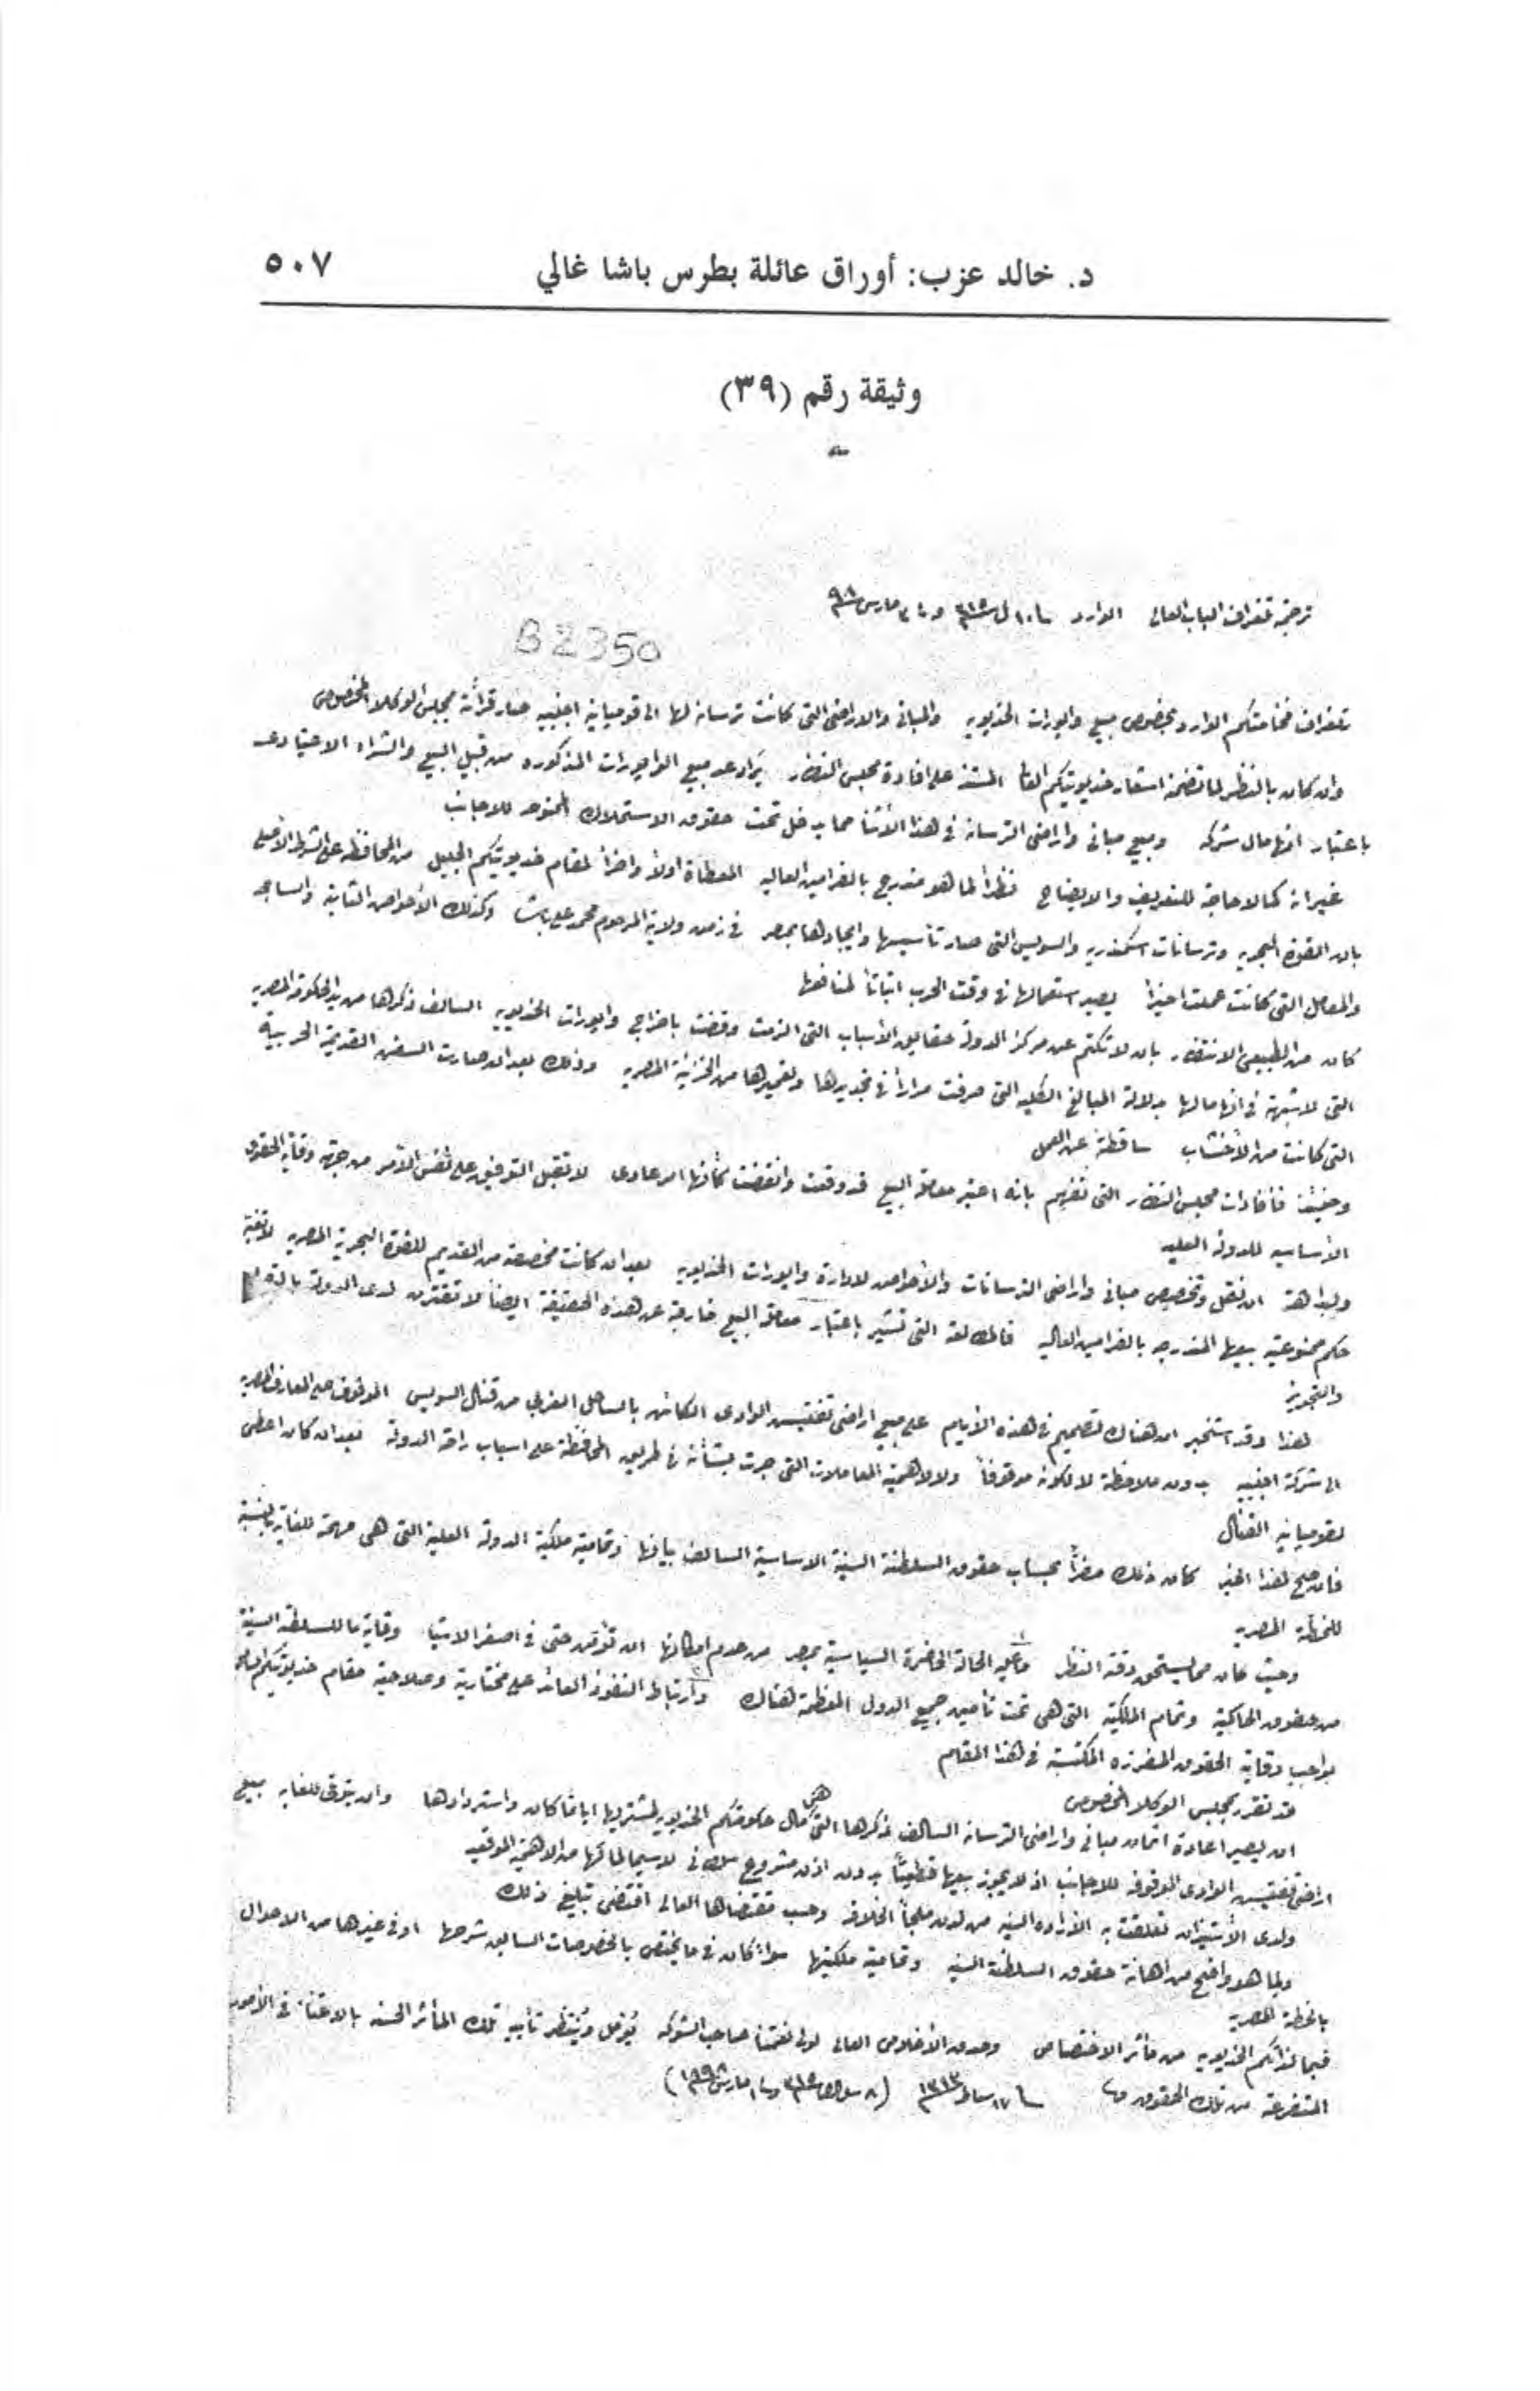 ٥٠٧
د. خالد عزب: أوراق عائلة بطرس باشا غالي
وثيقة رقم (٣٩)
ترجمة تلغراف الباب العالى الوارد مارس
B2350
تلغراف فخامتكم الوارد بخصوص بيع وابورات الخديويه والمبانى والاراضى التى كانت ترسانه لها الى قومبانية اجنبيه صار قرائته بمجلس الوكلا المخصوص
وان كان بالنظر لما تضمنه اشعار خديويتكم المستند على افادة مجلس النظار يراد عد بيع الوابورات المذكوره من قبيل البيع والشراء الاعتيادى
باعتبار انها مال شركه وبيع مبانى واراضى الترسانه فى هذا الأثنا مما يدخل تحت حقوق الاستملاك الممنوحه للاجانب
غير انه كما لا حاجة للتعريف والايضاح نظراً لما هو مندرج بالفرامين العاليه المعطاة اولاً واخراً لمقام خديويتكم الجليل من المحافظه على الشرط الأصلى
بان القوة البحريه وترسانات اسكندريه والسويس التى صار تأسيسها وايجادها بمصر فى زمن ولاية المرحوم محمد على باشا وكذلك الأحواض الثابته
والمعامل التى كانت عملت اخيراً يصير استعمالها فى وقت الحرب اثباتاً لمنافعها
كان من الطبيعى الانتظار بان لا تكتم عن مركز الدولة حقايق الأسباب التى الزمت وقضت باخراج وابورات الخديويه السالف ذكرها من يد الحكومة المصريه
التى لا شبهة فى انها مالها بدلالة المبالغ الكليه التى صرفت مراراً فى تجديدها وتعميرها من الخزينة المصريه وذلك بعد ان صارت السفن القديمة الحربية
التى كانت من الأخشاب ساقطة عن العمل
فأفادات مجلس النظار التى تفهم بانه اعتبر معاملة البيع قد وقعت وانقضت كأنها امر عادى لا تقبل التوفيق على نفس الأمر من جهة وقاية الحقوق
الاساسيه للدولة العليه
وبداهة ان نقل وتخصيص مبانى واراضى الترسانات والأحواض لادارة وابورات الخديويه بعد ان كانت مخصصه من القديم للقوة البحرية المصريه
حكم ممنوعية بيعها المندرجه بالفرامين العاليه التى تشير باعتبار معاملة البيع خارجة عن هذه الحقيقة ايضاً لا تقترن لدى الدولة
والتجويز
هذا وقد استخبر ان هناك تصميم فى هذه الأيام على بيع اراضى تفتيش الوادى الكائن بالساحل الغربى من قنال السويس الموقوف على المعارف المصريه
الى شركة اجنبيه بدون ملاحظة لا لكونه موقوفاً ولا لاهمية المعاملات التى جرت بشأنه فى طريق المحافظة على اسباب راحة الدولة بعد ان كان اعطى
لقومبانية القنال
فان صح هذا الخبر كان ذلك مضراً بحساب حقوق السلطنة السنية الاساسية السالف بيانها وتمامية ملكية الدولة العلية التى هى مهمة للغاية بالنسبة
للخطة المصريه
وحيث كان مما يستحق دقة النظر ما عليه الحالة الحاضرة السياسية بمصر من عدم امكانها ان توفق حتى فى اصغر الاشيا وقاية ما للسلطنة السنية
من حقوق الحاكمية وتمام الملكية التى هى تحت تأمين جميع الدول المعظمة هناك وارتباط النفوذ العائد على مختارية وصلاحية مقام خديويتكم
بواجب وقاية الحقوق المكتسبة فى هذا المقام
قد تقرر بمجلس الوكلا المخصوص
ان يصير اعادة اثمان مبانى واراضى الترسانه السالف ذكرها التى هى مال حكومتكم الخديويه لمشتريها اياً كان واستردادها وان يتوقى للغايه بيع
اراضى تفتيش الوادى الموقوفه للاجانب اذ لا يجوز بيعها قطعياً بدون اذن مشروع سلطانى لا سيما لما لها من الاهمية الموقعيه
ولدى الأستيذان تعلقت به الأراده السنيه من لدن ملجأ الخلافه وحسب مقتضاها العالى اقتضى تبليغ ذلك
ولما هو واضح من حقوق السلطنة السنيه وتمامية ملكيتها سواءً كان فى ما يختص بالخصوصات السابق شرحها او فى غيرها من الاحوال
بالخطة المصريه
فبما لذاتكم الخديويه من مأثر الاختصاص وصدق الأخلاص العالى لولى نعمتنا صاحب الشوكه يؤمل وينتظر تأييد تلك المأثر الحسنه بالاعتناء فى الأمور
المتفرعة من تلك الحقوق ١٧ ١٣١٣ (٨ مارس)